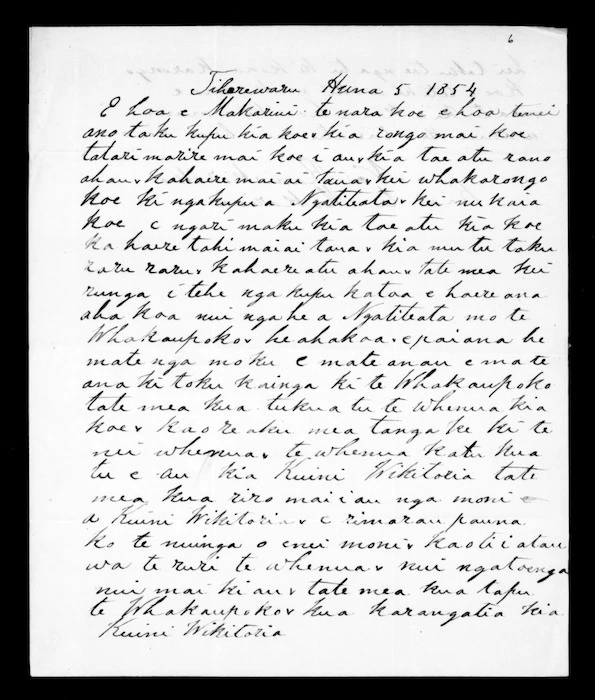 6
Tiherewaru Huna 5 1854
E hoa e Makarini tenara koe e hoa tenei
ano taku kupu kia koe x kia rongo mai koe
tatari marire mai koe i au x kia tae atu rano
ahau x kahaere mai ai taua x kei whakarongo
koe ki ngakupu a Ngatiteata x kei nukaia
koe e ngari maku kia tae atu kia koe
ka haere tahi mai ai taua x kia mutu toku
raru raru x kahaere atu ahau x tate mea kei
runga i tehe nga kupu katoa e haere ana
aha koa nui ngahe a Ngatiteata mo te
Whakaupoko x he ahakoa x epaiana he
mate nga moku e mate anau e mate
ana ki toku kainga ki te Whakaupoko
tate mea kua tukua tu te whenua kia
koe x kaore aku mea tanga ke ki te
nui whenua x te whenua katu kua
tu e au kia Kuini Wikitoria tate
mea kua riro mai i au nga moni e
a Kuini Wikitoria x e rimarau pauna
ko te nuinga o enei moni x
wa te ruri te whenua x nui ngatoenga
nui mai ki au x tate mea kua tapu
te Whakaupoko x kua karangatia kia
Kuini Wikitoria